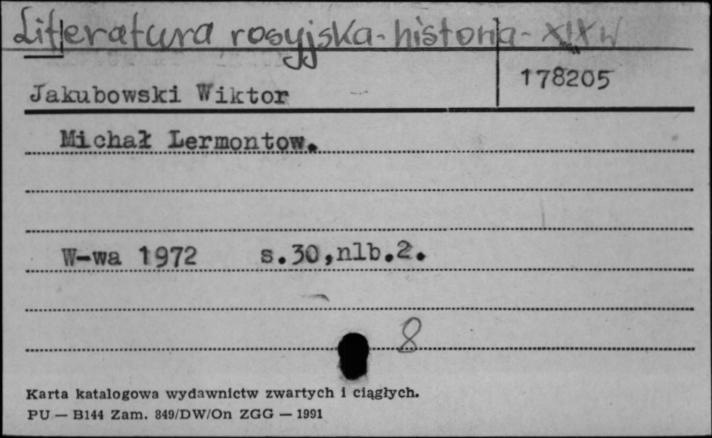 Literatura rosyjska-historia-XIX w
178205
Jakubowski Wiktor
Michał Lermontow.
W-wa 1972 s.30,nlb.2.
8
Karta katalogowa wydawnictw zwartych i ciągłych.
PU — B144 Zam. 849/DW/On ZGG — 1991